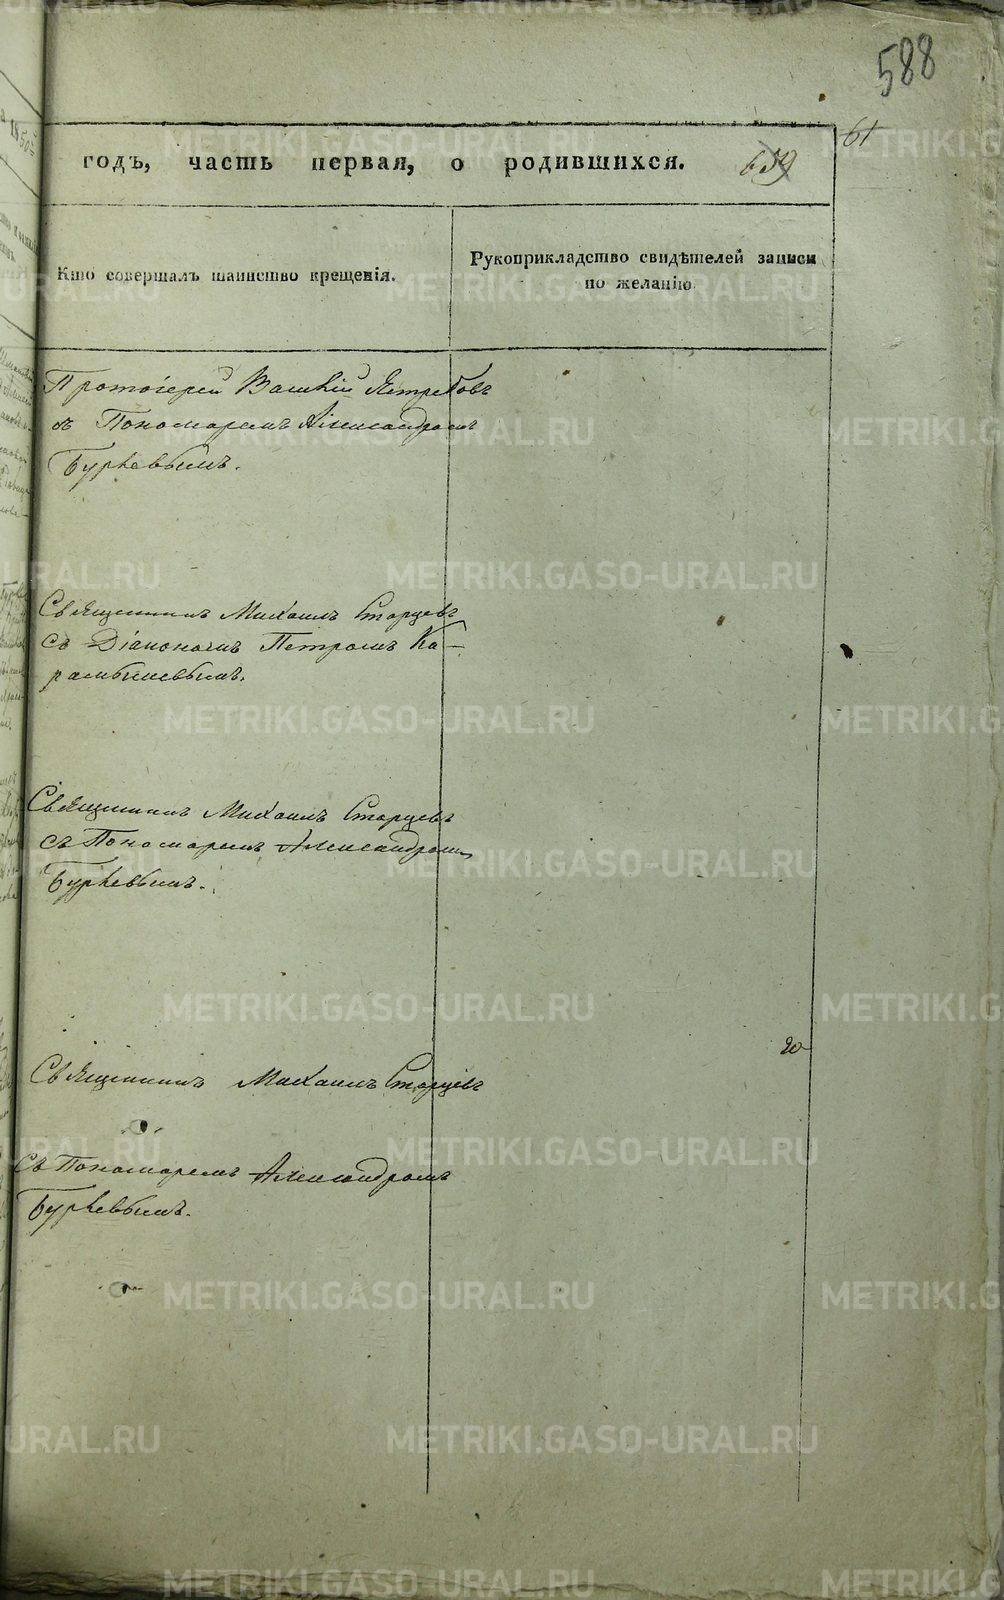 588
61
годъ, часть первая, о родившихся. 659
Кто совершалъ таинство крещенія.
Рукоприкладство свидѣтелей записи
по желанію.
Протоіерей Василій Ястребовъ
съ Пономаремъ Александромъ
Буркевымъ.
Священникъ Михаилъ Старцевъ
съ Діакономъ Петромъ Ка-
рамышевымъ.
Священникъ Михаилъ Старцевъ
съ Пономаремъ Александромъ
Буркевымъ.
Священникъ Михаилъ Старцевъ
съ Пономаремъ Александромъ
Буркевымъ.
METRIKI.GASO-URAL.RU